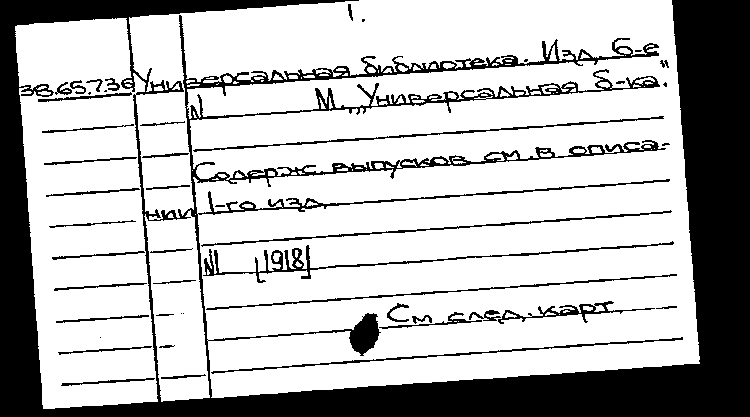 1.
38.65.736 Универсальная библиотека. Изд. 6-е
N М., „Универсальная б-ка."
Содерж. выпусков см. в описа-
нии 1-го изд.
N1 [1918]
См. след. карт.